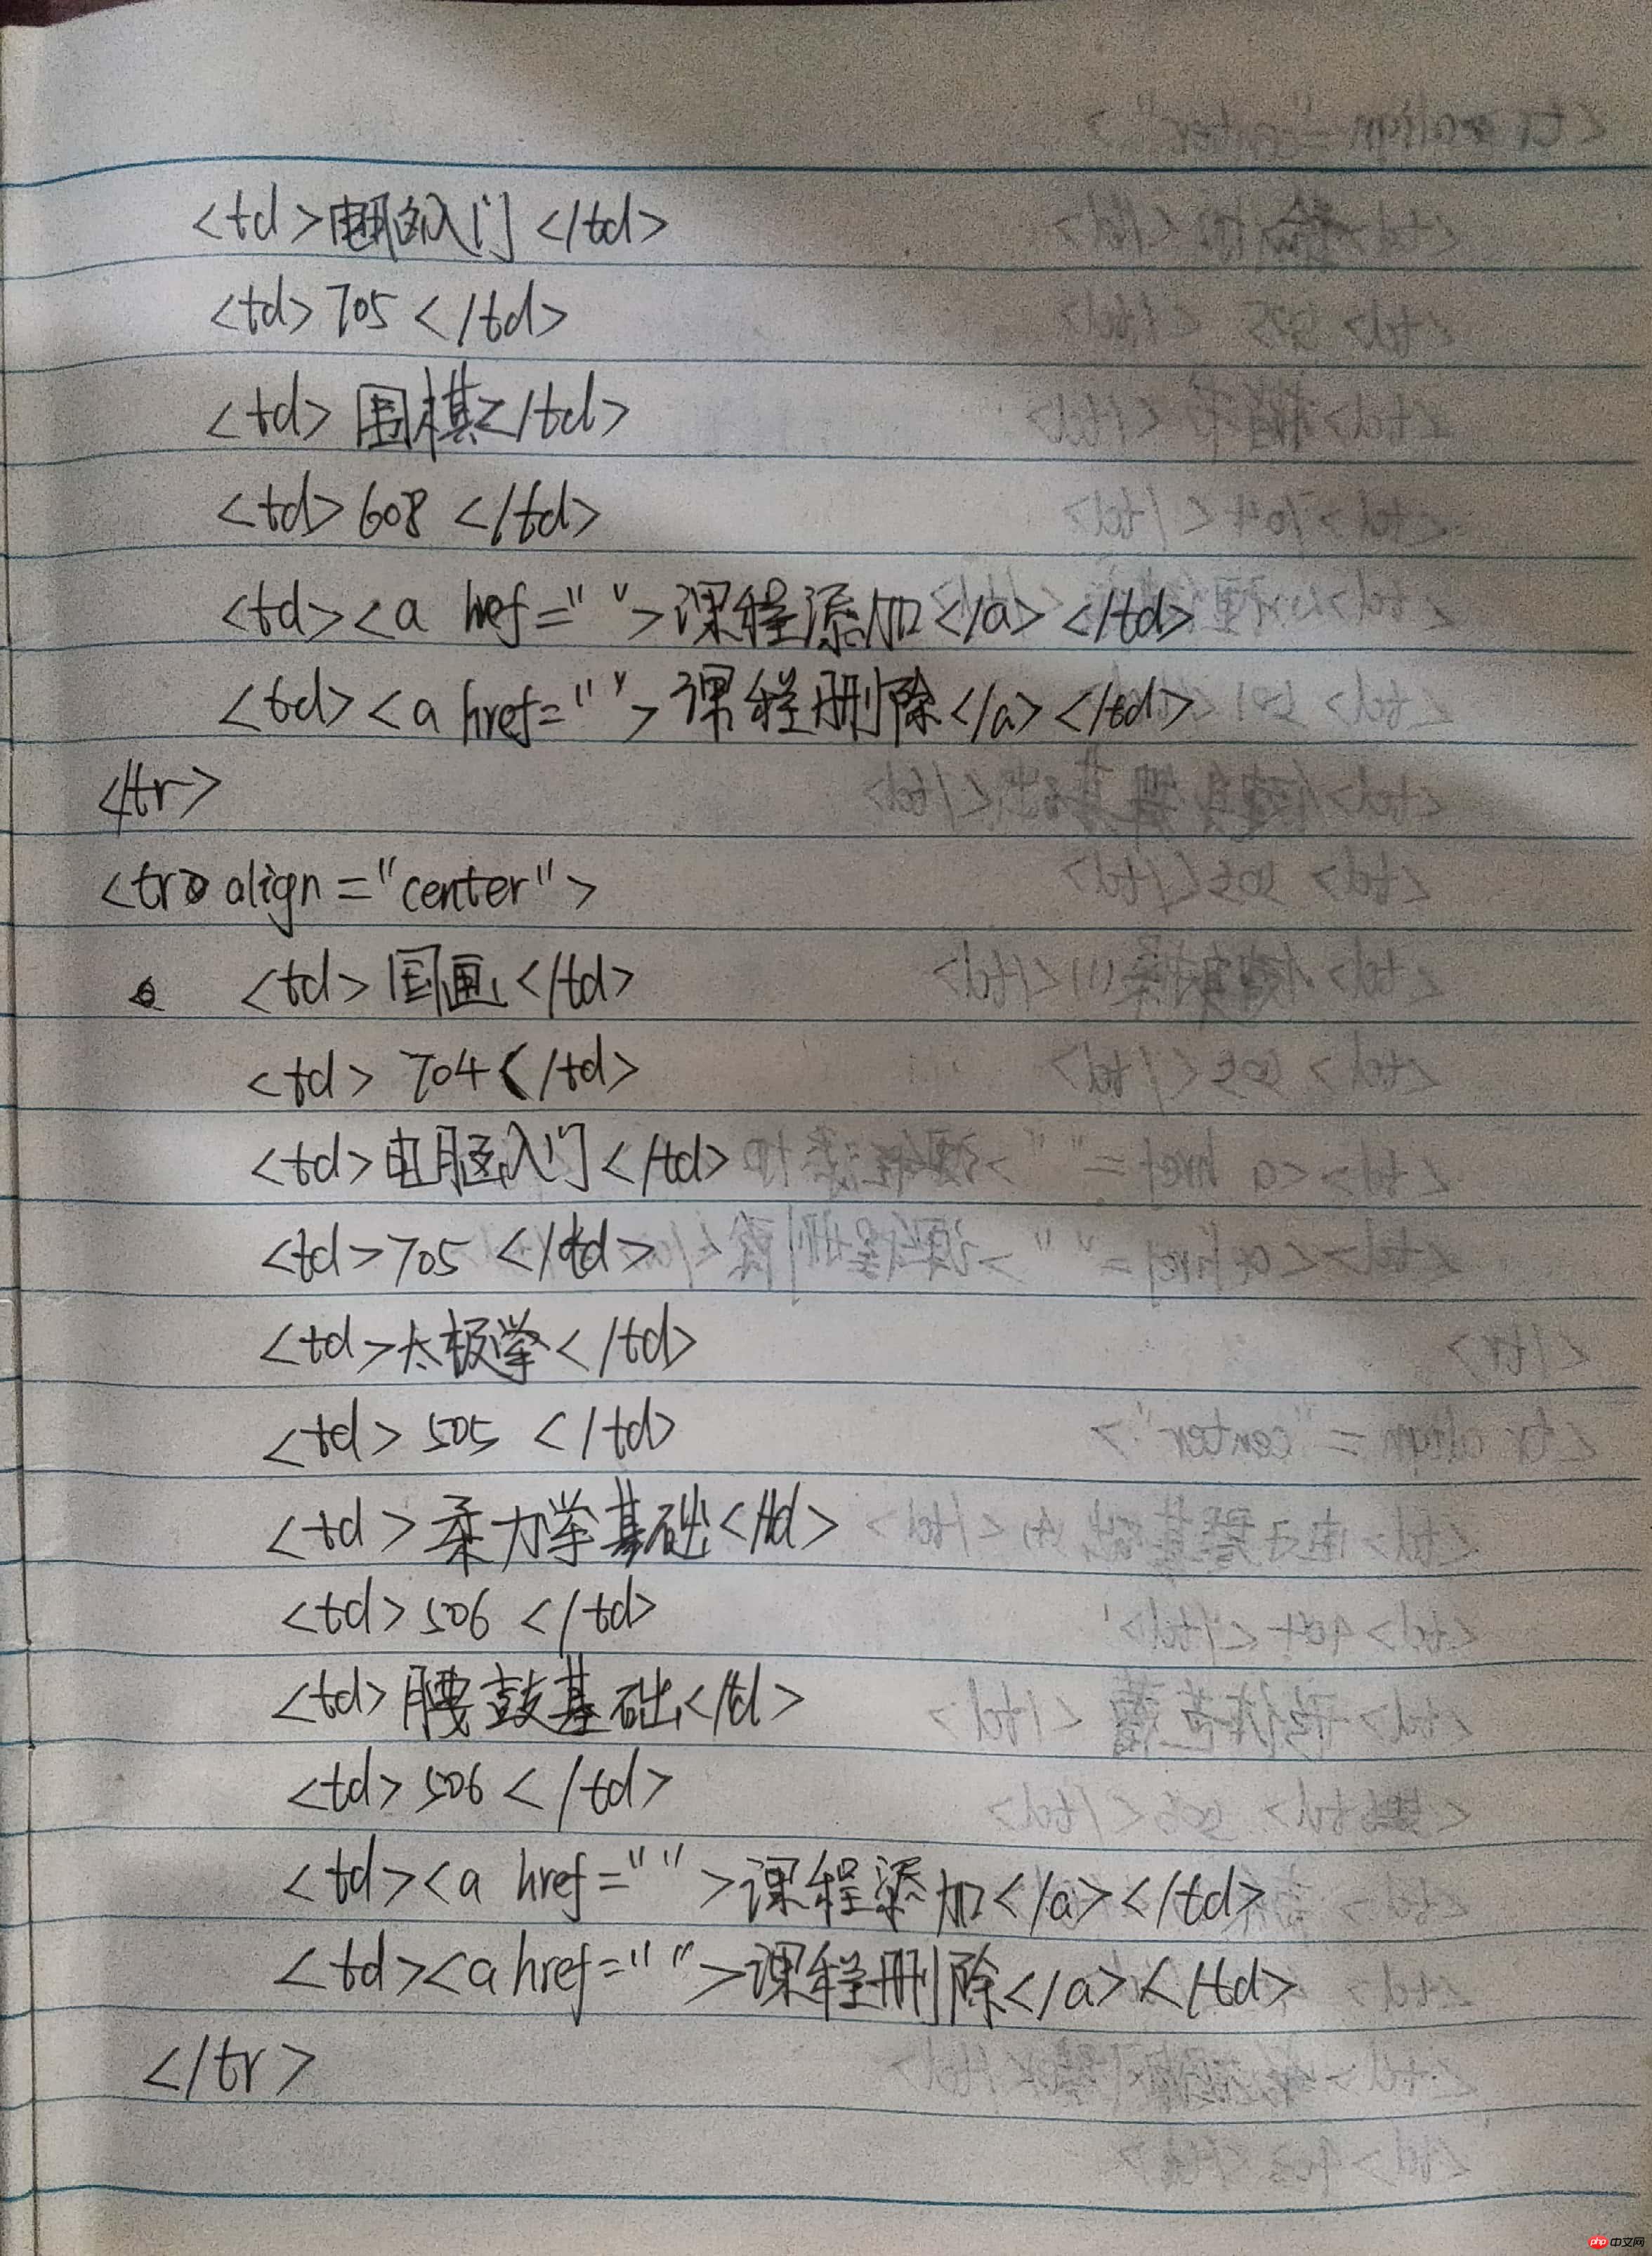 <td>电脑入门</td>
<td>705</td>
<td>围棋</td>
<td>608</td>
<td><a href="">课程添加</a></td>
<td><a href="">课程删除</a></td>
</tr>
<tr align="center">
<td>国画</td>
<td>704</td>
<td>电脑入门</td>
<td>705</td>
<td>太极拳</td>
<td>505</td>
<td>柔力学基础</td>
<td>506</td>
<td>腰鼓基础</td>
<td>506</td>
<td><a href="">课程添加</a></td>
<td><a href="">课程删除</a></td>
</tr>
php 中文网